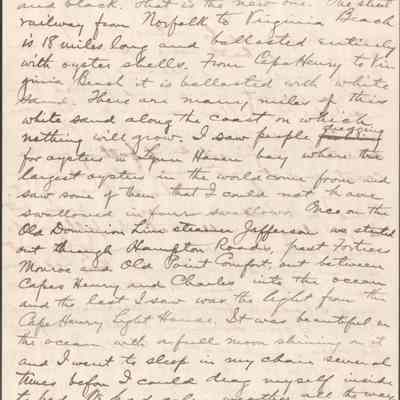 and black. That is the new one. The street
railway from Norfolk to Virginia Beach
is 18 miles long and ballasted entirely
with oyster shells. From Cape Henry to Vir
ginia Beach it is ballasted with white
sand. There are many miles of this
white sand along the coast on which
nothing will grow. I saw people
for oysters in Lynn Haven bay where the
largest oysters in the world come from and
saw some of them that I could not have
swallowed in four swallows. Once on the
Old Dominion Line steamer Jefferson we started
out through Hampton Roads, past Fortress
Monroe and Old Point Comfort, out between
Capes Henry and Charles into the ocean
and the last I saw was the light from the
Cape Henry Light House. It was beautiful on
the ocean with a full moon shining on it
and I went to sleep in my chair several
times before I could drag myself inside
to bed. We had weather all the way